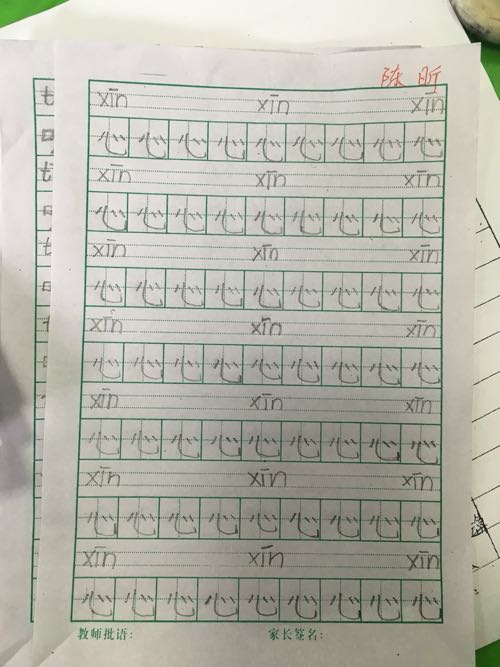 陈昕
xīn xīn xīn
心心心心心心心心心
xīn xīn xīn
心心心心心心心心心
xīn xīn xīn
心心心心心心心心心
xīn xīn xīn
心心心心心心心心心
xīn xīn xīn
心心心心心心心心心
xīn xīn xīn
心心心心心心心心心
xīn xīn xīn
心心心心心心心心心
教师批语: 家长签名: